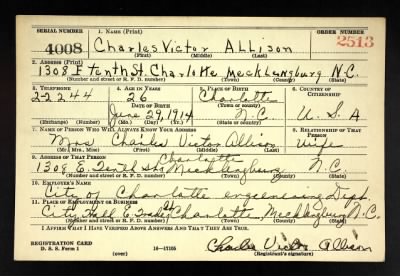 SERIAL NUMBER 1. NAME (Print) ORDER NUMBER
4008 Charles Victor Allison 2513
(First) (Middle) (Last)
2. ADDRESS (Print)
1308 E tenth St. Charlotte Mecklenburg N.C.
(Number and street or R. F. D. number) (Town) (County) (State)
3. TELEPHONE 4. AGE IN YEARS 5. PLACE OF BIRTH 6. COUNTRY OF CITIZENSHIP
2-2244 26 Charlotte
DATE OF BIRTH (Town or county)
June 29, 1914 N.C. U.S.A
(Exchange) (Number) (Mo.) (Day) (Yr.) (State or country)
7. NAME OF PERSON WHO WILL ALWAYS KNOW YOUR ADDRESS 8. RELATIONSHIP OF THAT PERSON
Mrs Charles Victor Allison wife
(Mr., Mrs., Miss) (First) (Middle) (Last)
9. ADDRESS OF THAT PERSON
Charlotte
1308 E. Tenth St Mecklenburg N.C.
(Number and street or R. F. D. number) (Town) (County) (State)
10. EMPLOYER'S NAME
City of Charlotte engineering Dept
11. PLACE OF EMPLOYMENT OR BUSINESS
City Hall E. Trade St Charlotte Mecklenburg N.C.
(Number and street or R. F. D. number) (Town) (County) (State)
I AFFIRM THAT I HAVE VERIFIED ABOVE ANSWERS AND THAT THEY ARE TRUE.
REGISTRATION CARD
D. S. S. Form 1 (over) 16—17105 Charles Victor Allison
(Registrant's signature)